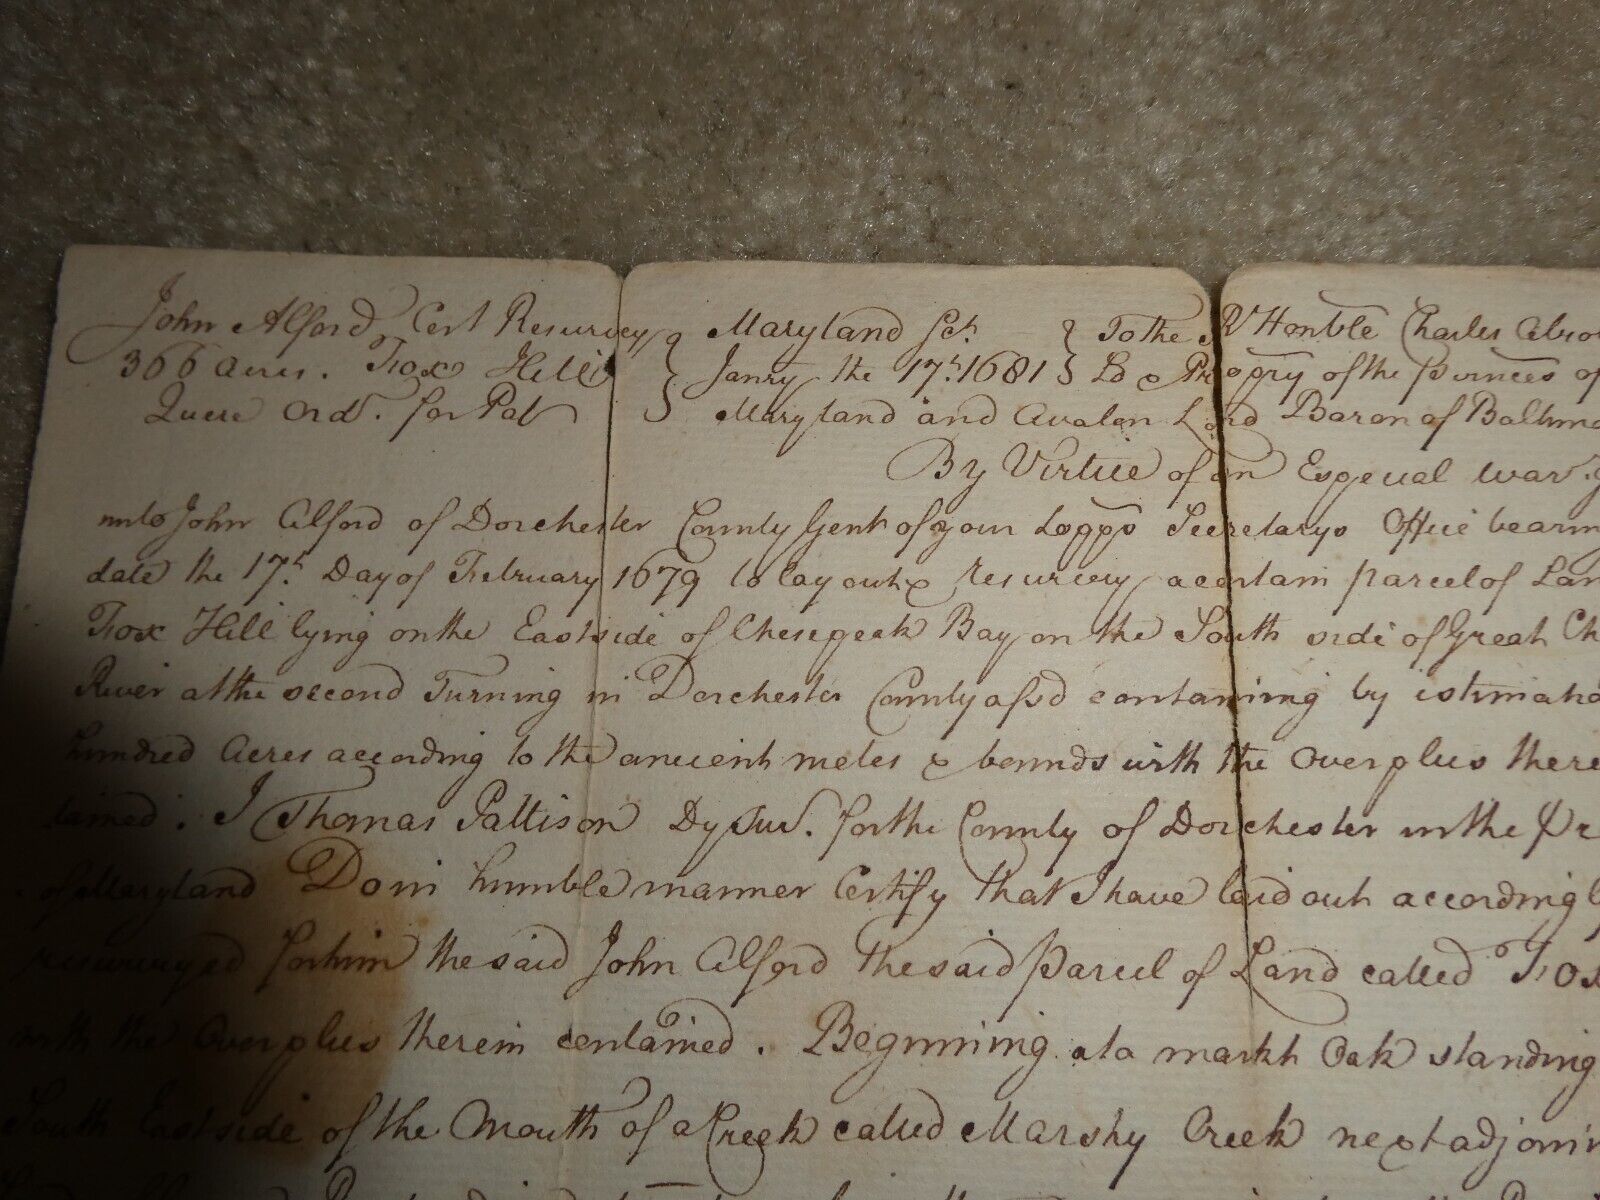 John Alford Cert Resurvey
366 acres. Fox Hill
Quere Ord. for Pat
Maryland Sct. } To the Rt Honble Charles Abso
Janry the 17th. 1681 } Ld & Propry of the Provinces of
Maryland and Avalon Lord Baron of Baltimo
By Virtue of an Especial War.
unto John Alford of Dorchester County Gent of your Lopps Secretarys Office bearin
date the 17th. Day of February 1679 to lay out & resurvey a certain parcel of Lan
Fox Hill lying on the East side of Chesepeak Bay on the South side of Great Ch
River at the second Turning in Dorchester County afsd containing by estimatio
hundred Acres according to the ancient metes & bounds with the Overplus there
tained. I Thomas Pattison Dy Sur. for the County of Dorchester in the Pr
of Maryland Do in humble manner Certify that I have laid out according
resurveyed for him the said John Alford the said Parcel of Land called Fox
with the Overplus therein contained. Beginning at a markt Oak standing
South East side of the Mouth of a Creek called Marshy Creek next adjoinin